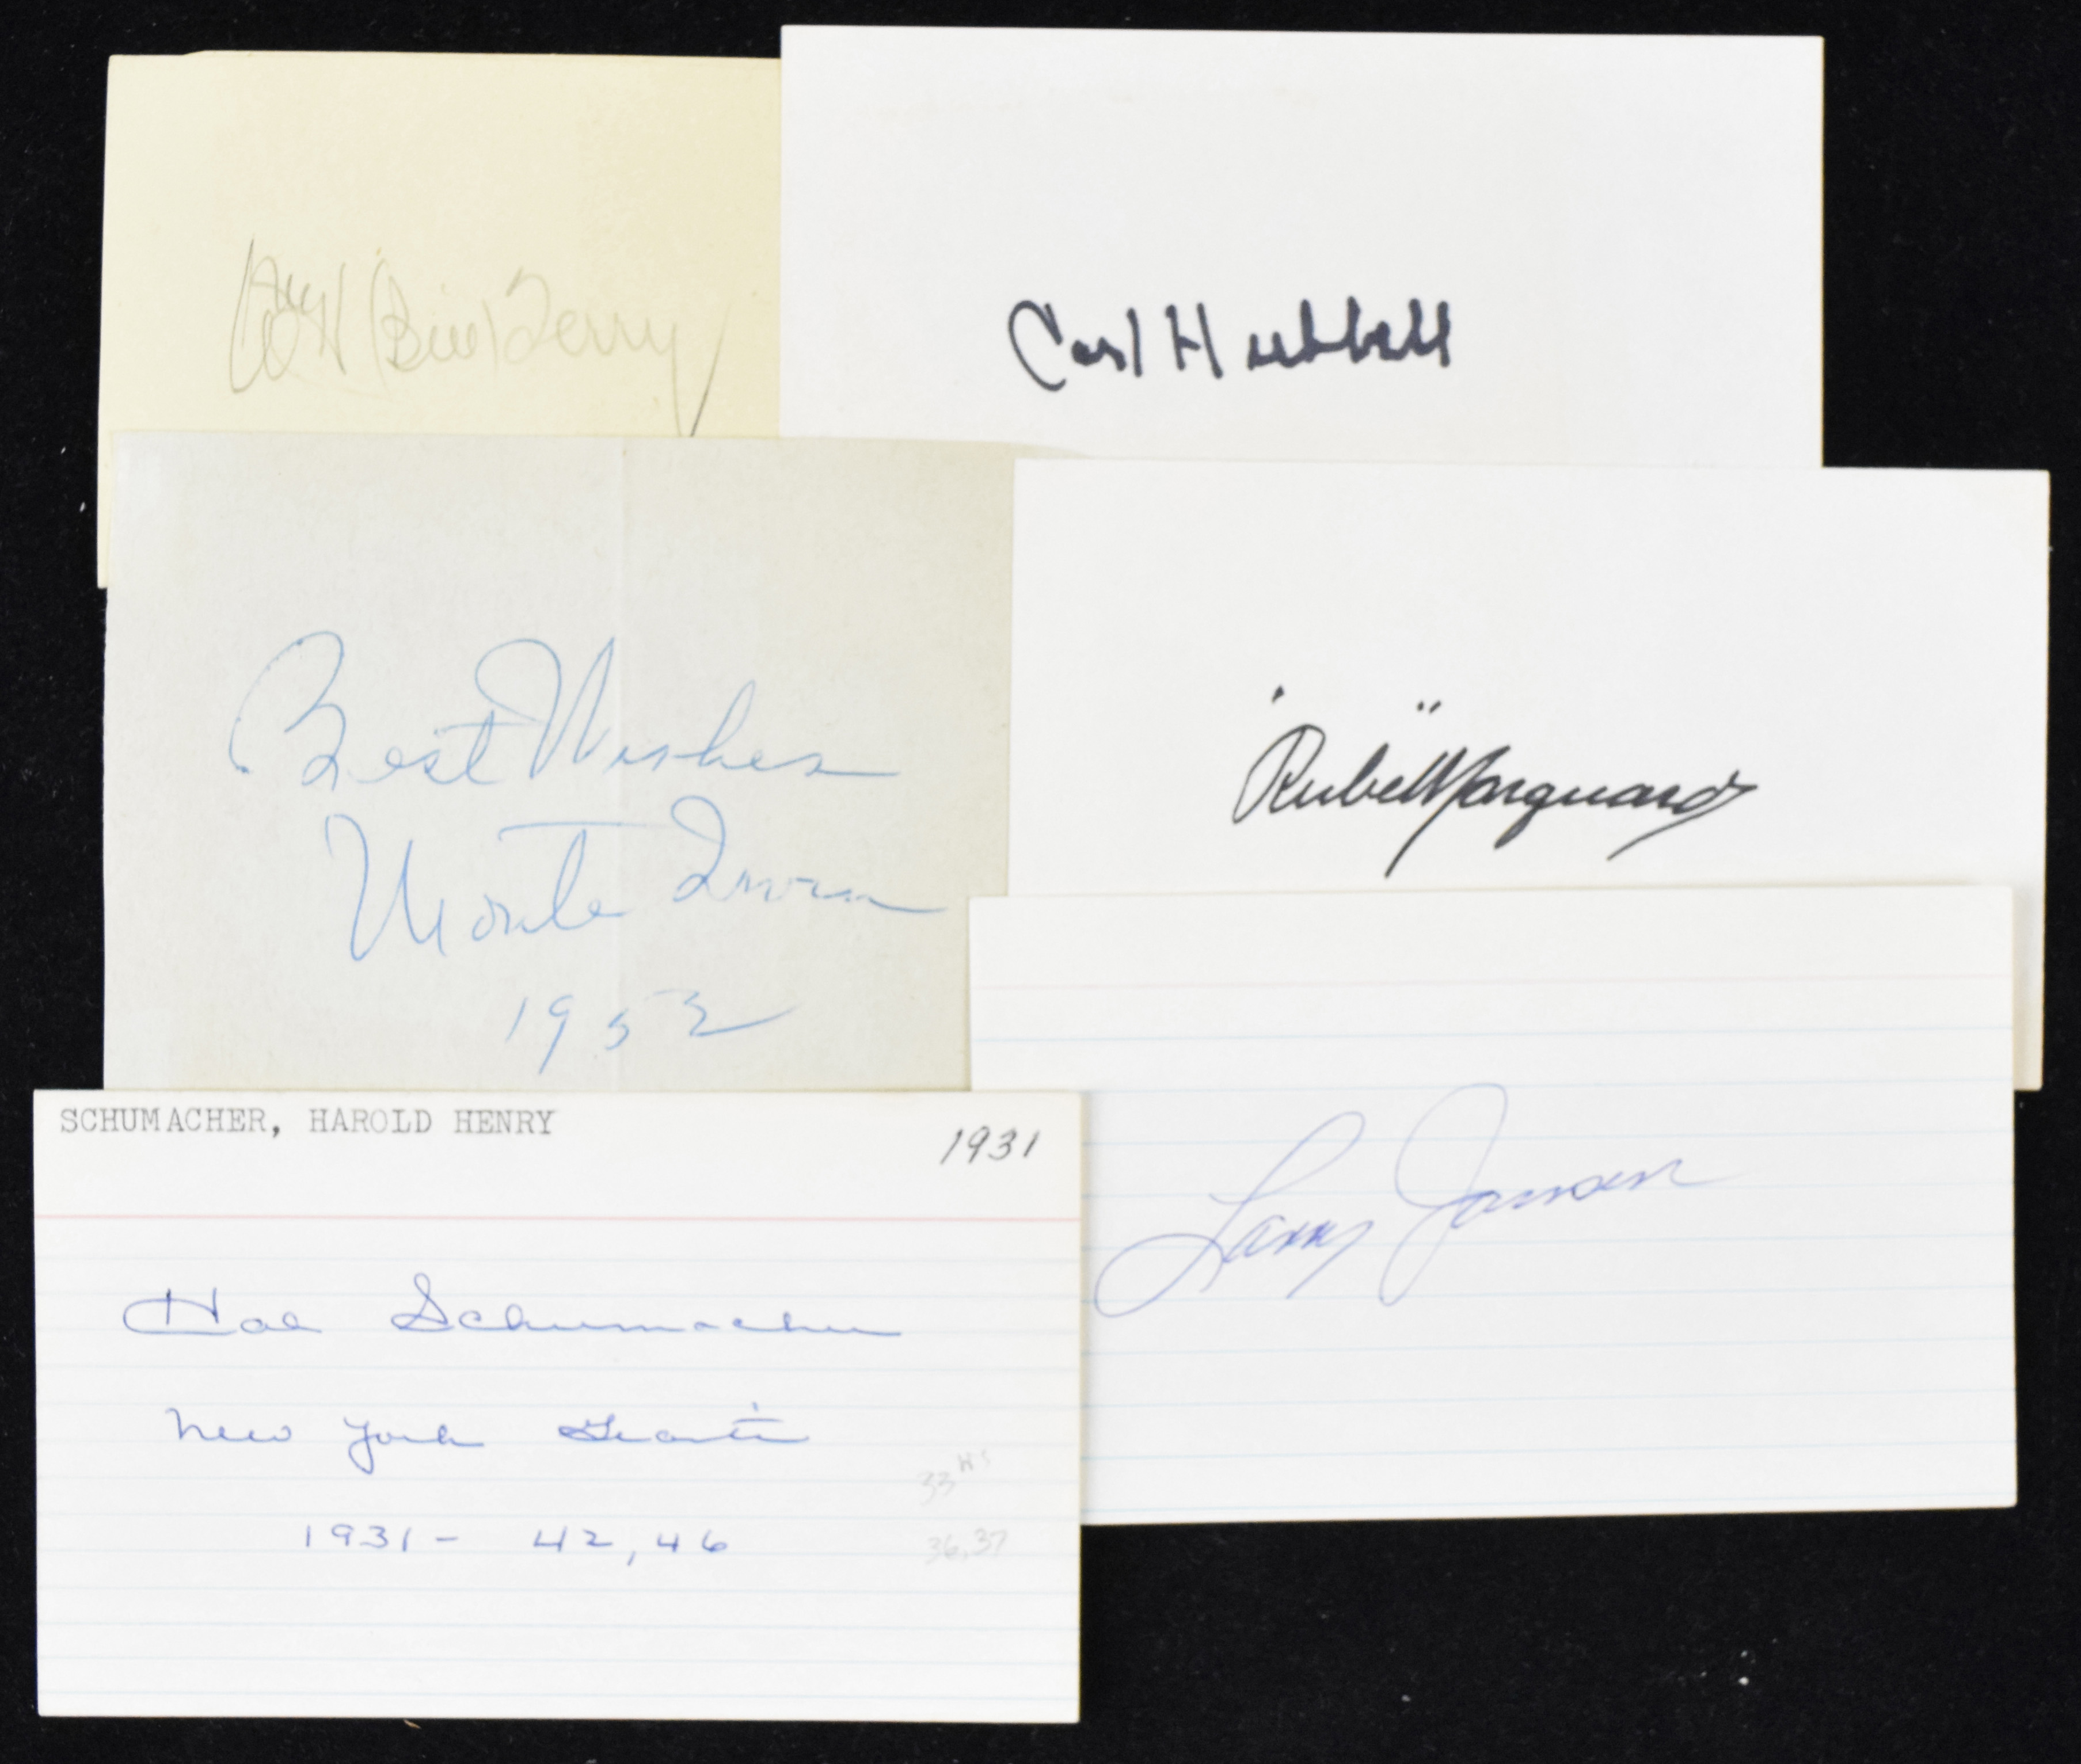 Wm H (Bill) Terry
Carl Hubbell
Best Wishes
Monte Irvin
1952
"Rube" Marquard
Larry Jansen
SCHUMACHER, HAROLD HENRY
1931
Hal Schumacher
New York Giants
1931- 42, 46
33 WS
36, 37